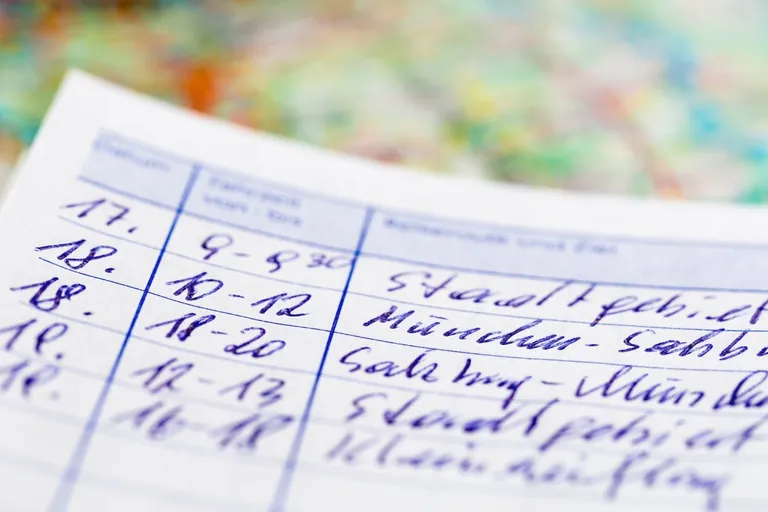 Datum Fahrzeit Reiseroute und Ziel
von - bis
17. 9-9 30 Stadtgebiet
18. 10-12 München - Salzbu
18. 18-20 Salzburg - Münch
19. 12-13 Stadtgebiet
16-18